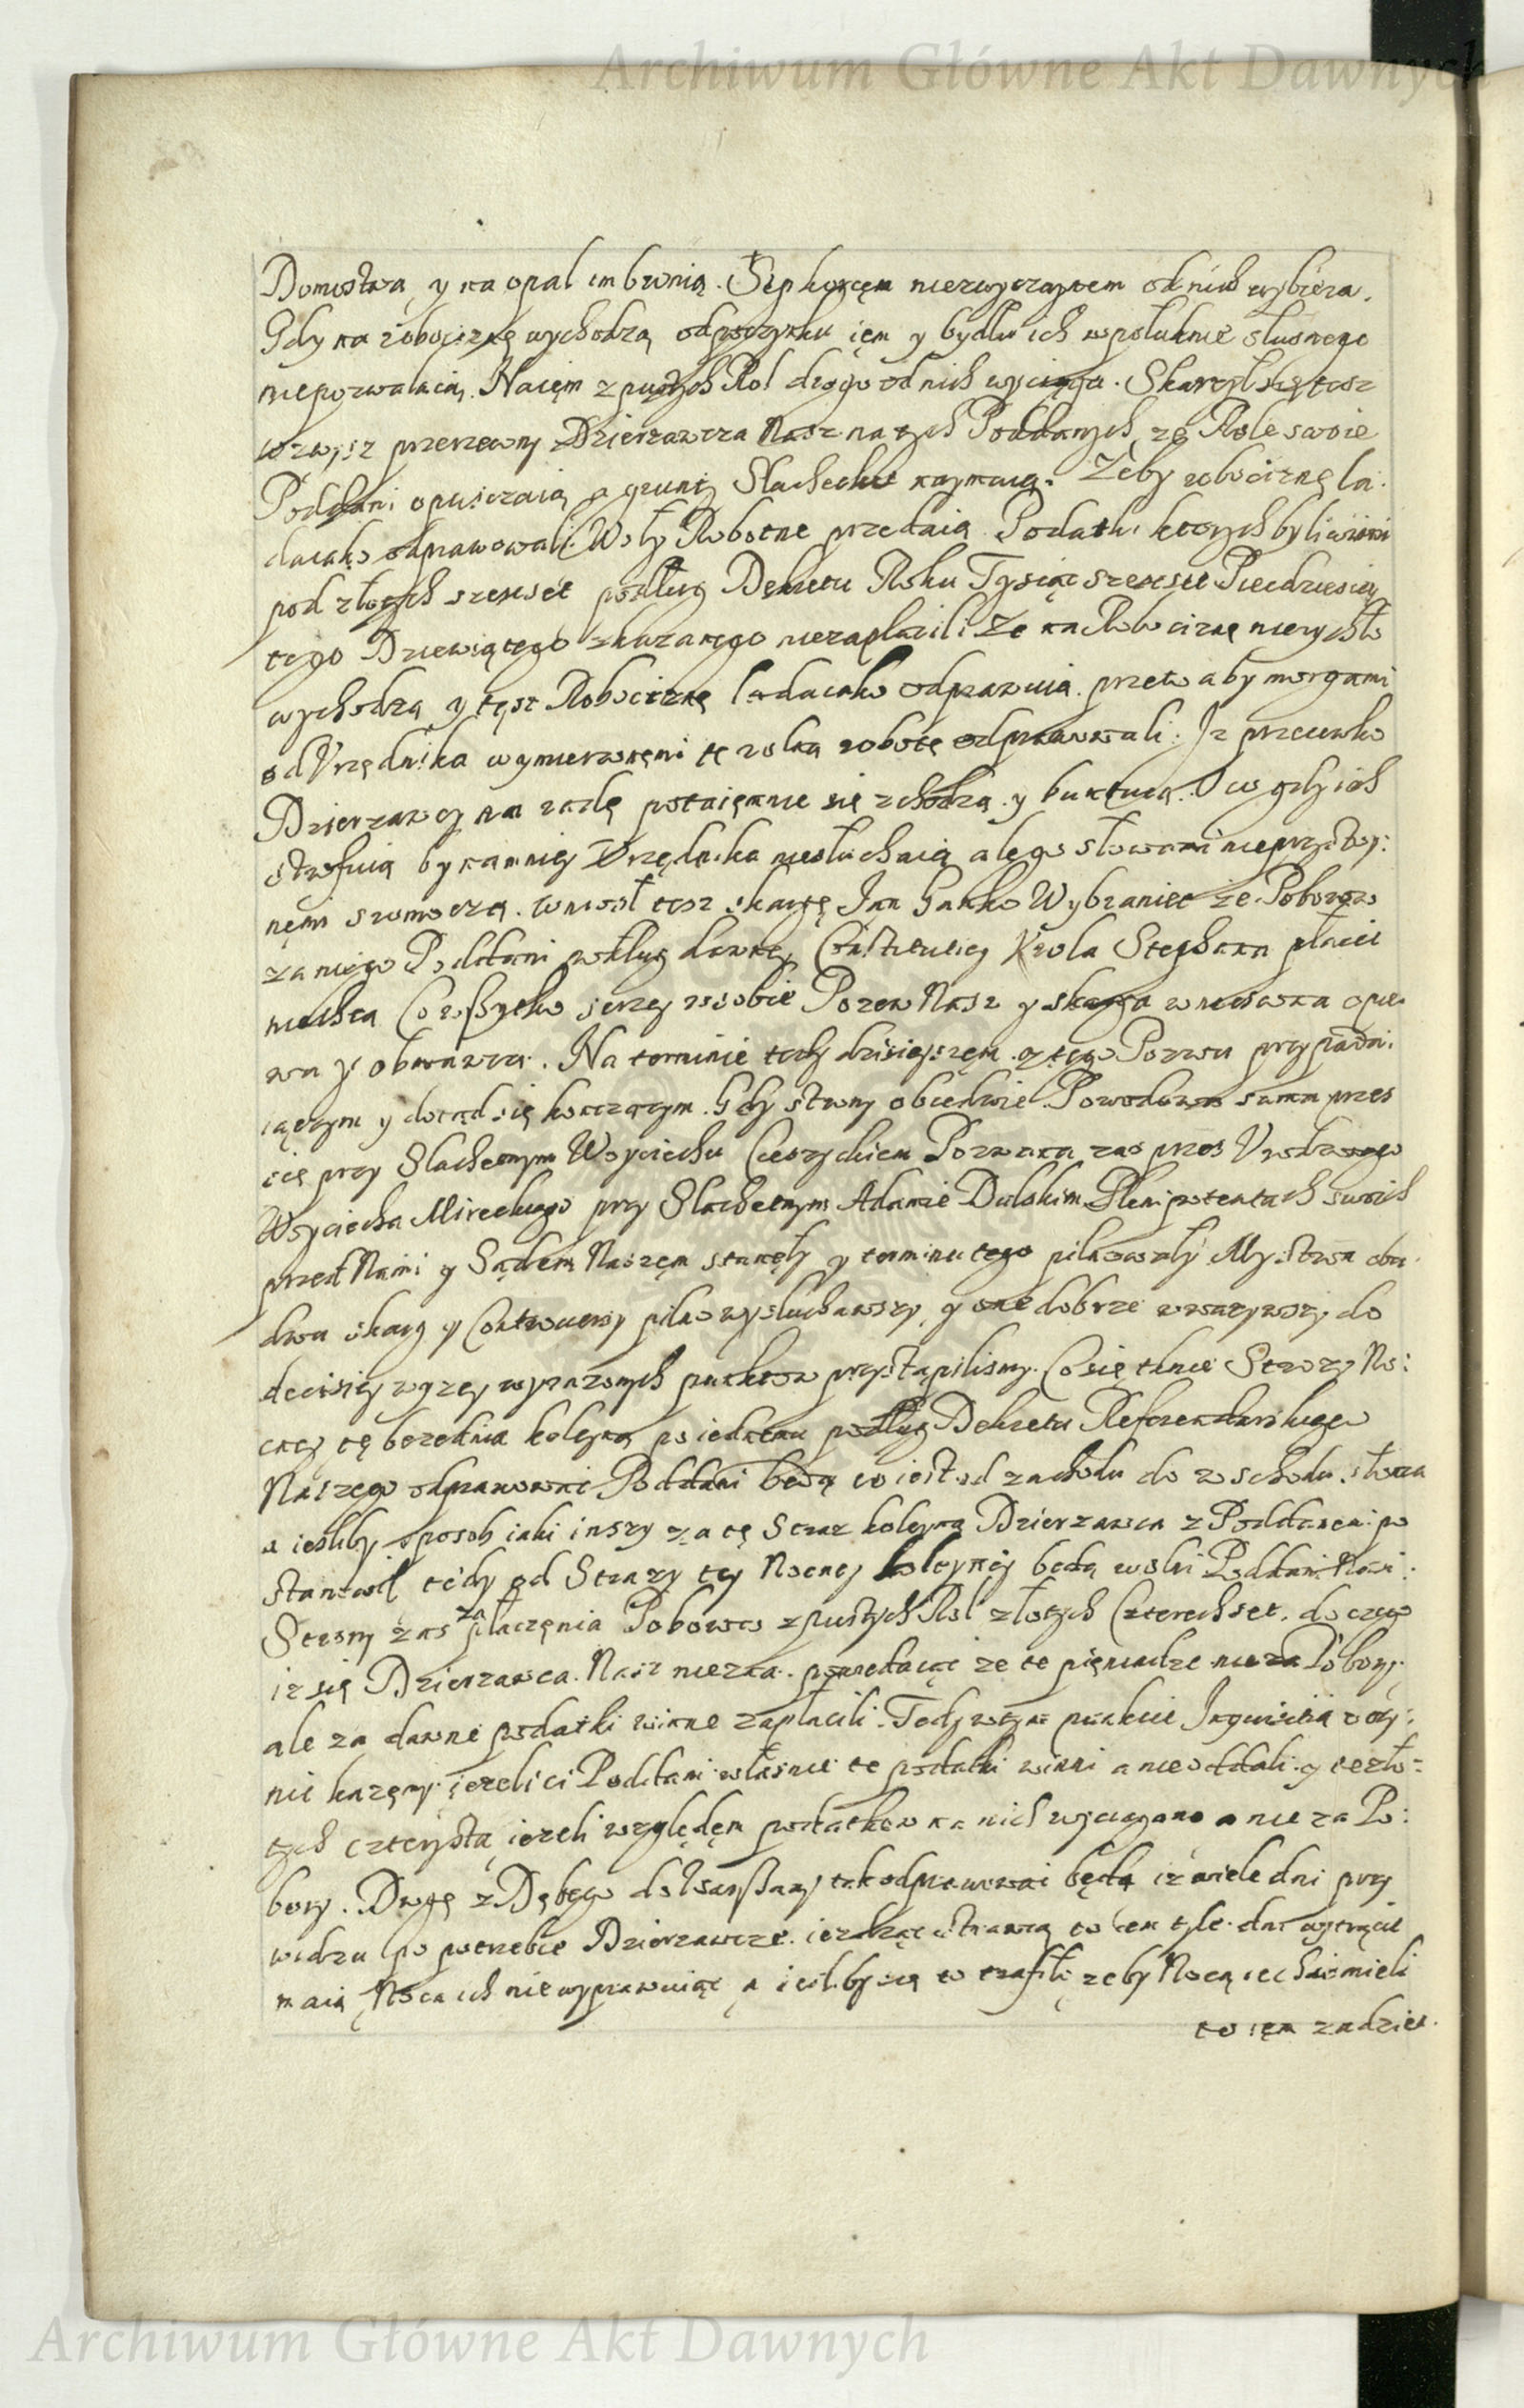 Archiwum Główne Akt Dawnych
Domostwa y na opał im bronią. Sep korcem niezwyczaynem od nich wybiera.
Gdy na robociznę wychodzą odpoczynku ięm y bydłu ich wpołudnie słusznego
niepozwalaią. Naięm z pustych Rol drogo od nich wyciąga. Skarżył się tesz
wzwysz przerzeczony Dzierzawca Nasz na tych Poddanych, ze Role swoie
Poddani opuszczaią a grunty Slacheckie naymuią. Zeby robociznę la:
daiako odprawowali. Woły Robotne przedaią. Podatki ktorych byli winni
pod złotych szescset podług Dekretu Roku Tysiąc szescset Piecdziesią
tego Dziewiątego zkazanego niezapłacili. Ze na Robociznę nierychło
wychodzą y tęsz Robociznę ladaiako odprawuią. przeto aby morgami
od Vrzędnika wymierzonęmi tę rolną robotę odprawowali. Jz przeciwko
Dzierzawcy na radę potaięmnie się zchodzą y buntuią. O co gdy ich
strofuią bynamniey Vrzędnika niesłuchaią ale go słowami nieprzistoy:
nęmi sromoczą. Wniosł tesz skargę Jan Ganko Wybraniec ze Poborow
za niego Poddani podług dawney Constitucicy Krola Stephana płacic
niechcą Co wszytko szerzey w sobie Pozew Nasz y skarga wniesiona opie
wa y obmawia. Na terminie tedy dzisieyszęm z tego Pozwu przypada:
iącym y dotąd się toczącym. Gdy strony obiedwie Powodowa sama przes
się przy Slachetnym Woyciechu Cieszyckiem Pozwana zas przes Vrodzonego
Woyciecha Mireckiego przy Slachetnym Adamie Dulskim Plenipotentach swoich
przed Nami y Sądem Naszęm stanęły y terminu tego pilnowały My Stron obu
dwu skarg y Controwersy pilno wysłuchawszy, y one dobrze uwazywszy do
decisiey wyzey wyrazonych punktow przystąpilismy. Co się tknie Strozy No:
cney tę berednią koleyną po iednemu podług Dekretu Referendarskiego
Naszego odprawowac Poddani będą to iest od zachodu do wschodu słonca
a iesliby sposob iaki inszy za tę Straz koleyną Dzierzawca z Poddanemi po
stanowił tedy od Strazy tey Nocney koleyney będą wolni Poddani Nasi.
Strony zas zapłacęnia Poborow z pustych Rol złotych Czterechset. do czego
iz się Dzierzawca Nasz niezna. powiedaiąc ze te pięniądze nie za Pobory.
ale za dawne podatki winne zapłacili. Tedy w tym punkcie Inquisitią vczy:
nic kazęmy. iezeli ci Poddani własnie te podatki winni a nieoddali. y te zło=
tych czterysta iezeli względęm podatkow na nich wyciągano a nie za Po:
bory. Drogę z Dębego do Warszawy tak odprawowac będą iz wiele dni przy
wodzu po potrzebie Dzierzawcze iezdząc strawią to ięm tyle dni wytrącic
maią Nocą ich niewyprawuiąc a iesliby się to trafiło zeby Nocą iechac mieli
to ięm za dzien.
Archiwum Główne Akt Dawnych